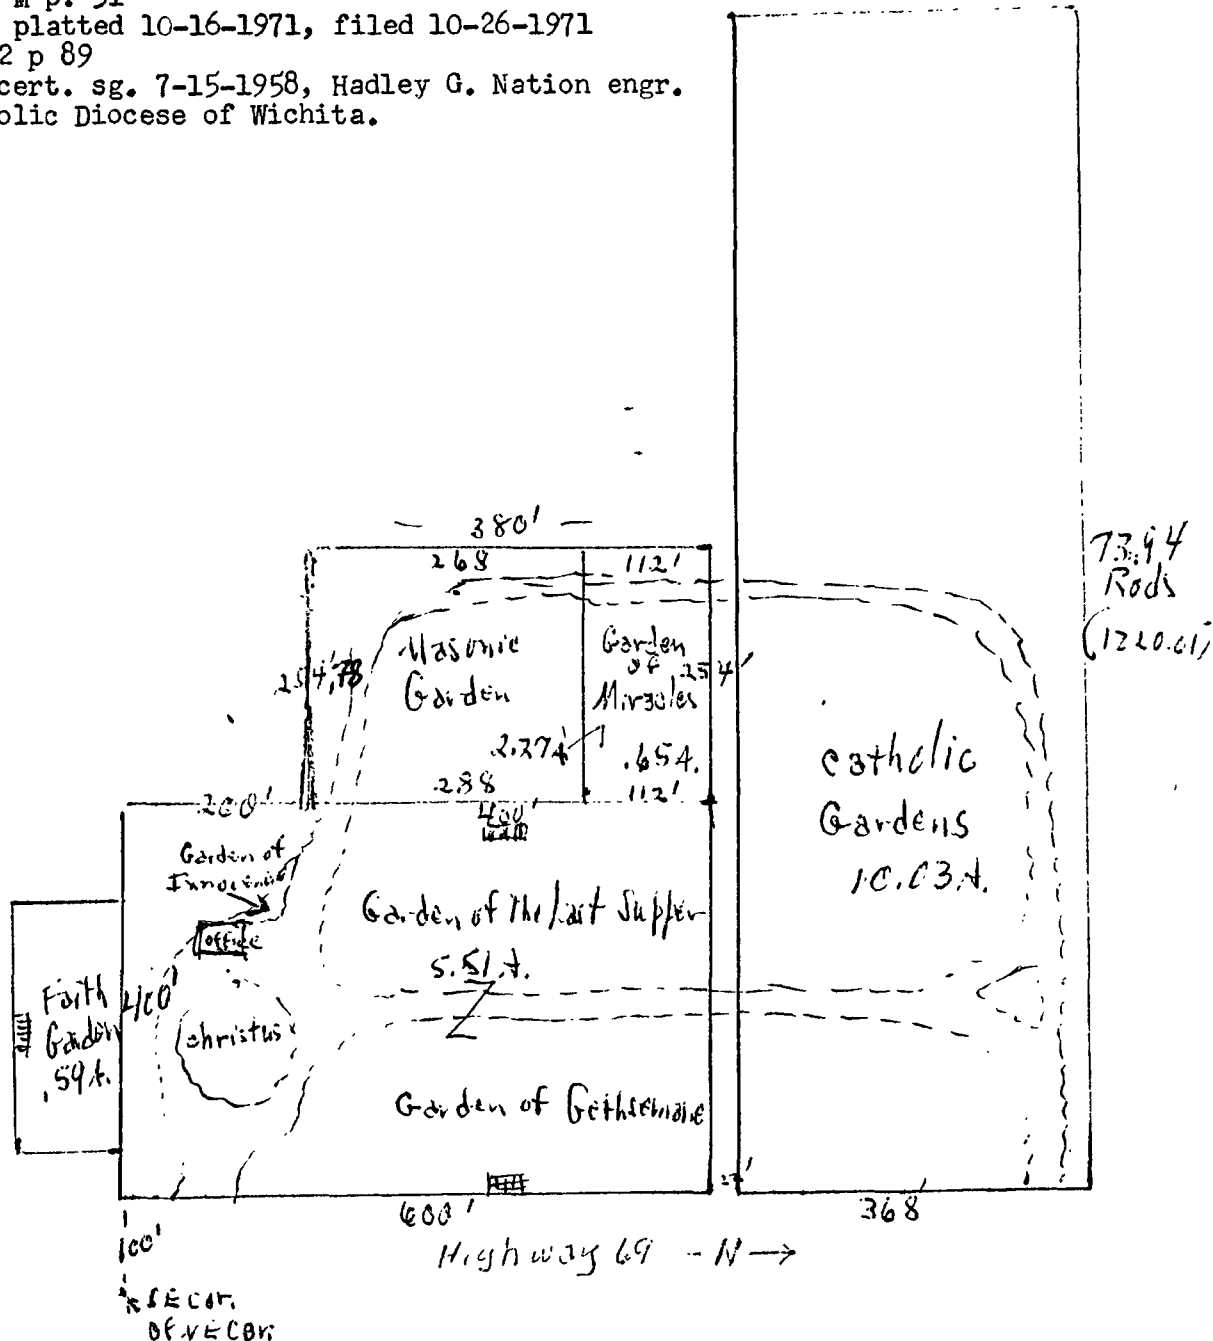 M p. 51
platted 10-16-1971, filed 10-26-1971
2 p 89
cert. sg. 7-15-1958, Hadley G. Nation engr.
olic Diocese of Wichita.
380'
268
112'
73.94
Rods
(1220.01)
Masonic
Garden
Garden
of
Miracles
254.78
254'
2.27A
.65A.
288
112'
200'
400'
Catholic
Gardens
10.03A.
Garden of
Innocence
office
Garden of the Last Supper
5.51 A.
Faith
Garden
.59A.
400'
Christus
Garden of Gethsemane
27'
600'
368'
100'
Highway 69 - N →
SE Cor.
OF NE Cor.